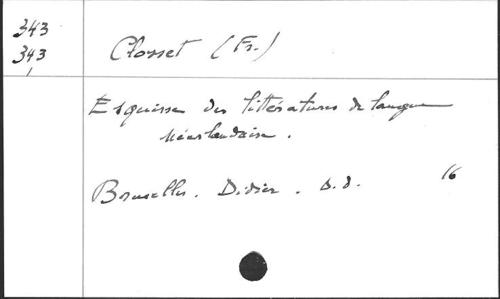 343
343
Closset (Fr.)
Esquisse des littératures de langue
néerlandaise.
Bruxelles. Didier. s.d. 16